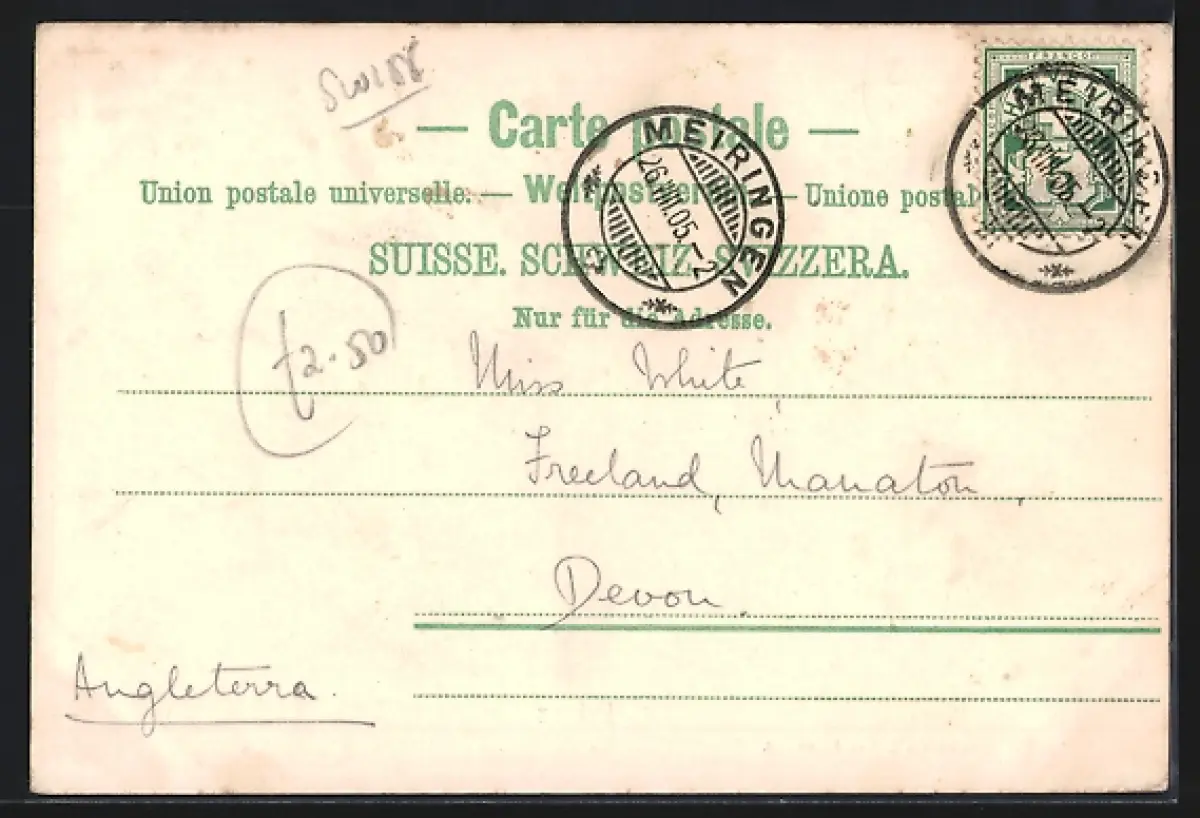 Swiss
FRANCO
— Carte postale —
MEIRINGEN
26.VIII.05.–2
MEIRINGEN
Union postale universelle. — Weltpostverein — Unione postal
SUISSE. SCHWEIZ. SVIZZERA.
Nur für die Adresse.
£2-50
Miss White,
Freeland, Manaton,
Devon.
Angleterra.